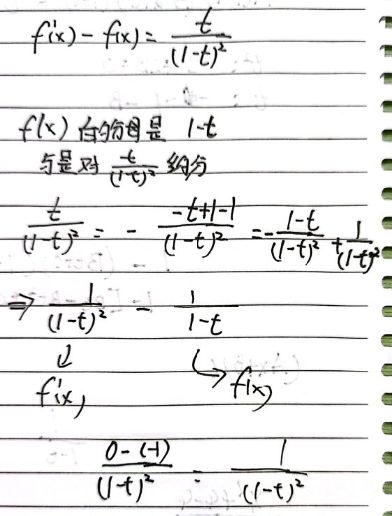 f'(x) - f(x) = t/(1-t)²
f(x) 的分母是 1-t
于是对 t/(1-t)² 约分
t/(1-t)² = - (-t+1-1)/(1-t)² = - (1-t)/(1-t)² + 1/(1-t)²
⇒ 1/(1-t)² - 1/(1-t)
↓ ↳ f(x)
f'(x)
(0-(-1))/(1-t)² = 1/(1-t)²